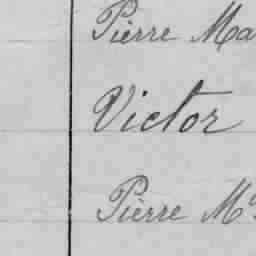 Pierre Ma
Victor
Pierre M